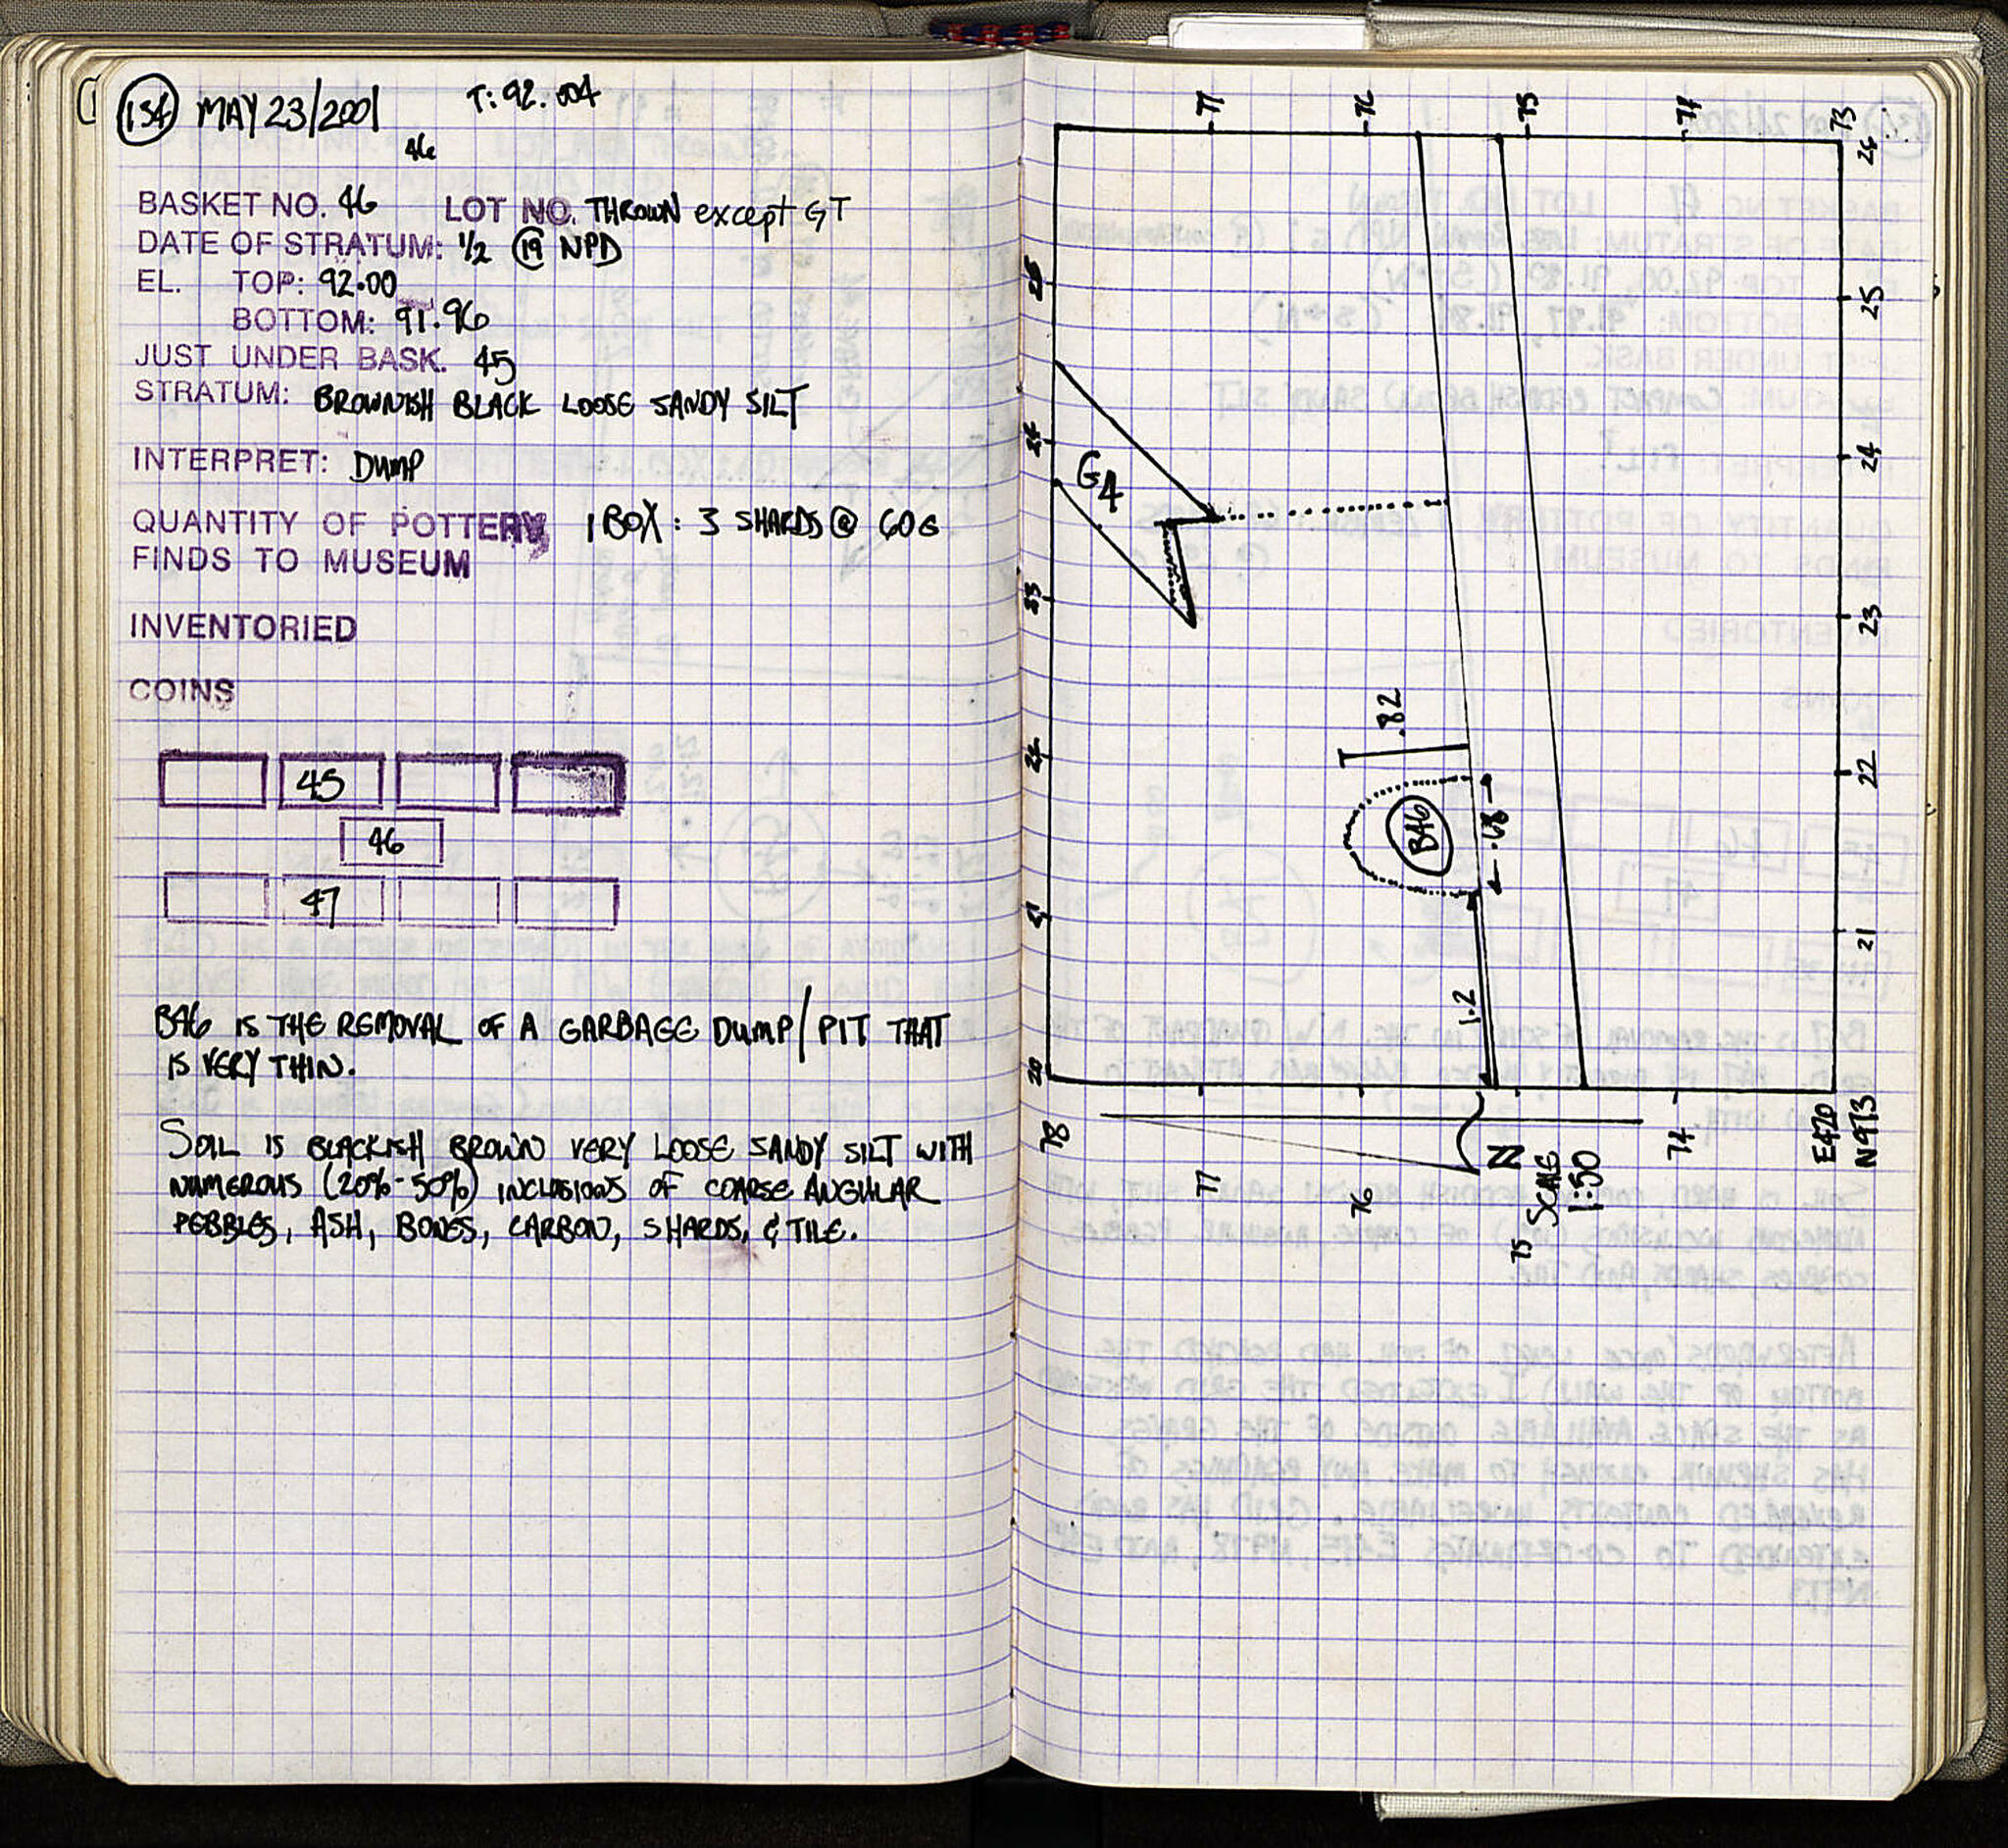 134 MAY 23/2001 T: 92.004
46
BASKET NO. 46 LOT NO. THROWN except GT
DATE OF STRATUM: 1/2 @ 19 NPD
EL. TOP: 92.00
BOTTOM: 91.96
JUST UNDER BASK. 45
STRATUM: BROWNISH BLACK LOOSE SANDY SILT
INTERPRET: DUMP
QUANTITY OF POTTERY 1 BOX : 3 SHARDS @ 60G
FINDS TO MUSEUM
INVENTORIED
COINS
45
46
47
B46 IS THE REMOVAL OF A GARBAGE DUMP/PIT THAT
IS VERY THIN.
SOIL IS BLACKISH BROWN VERY LOOSE SANDY SILT WITH
NUMEROUS (20%-50%) INCLUSIONS OF COARSE ANGULAR
PEBBLES, ASH, BONES, CARBON, SHARDS, & TILE.
77 76 75 74 73
26
25 25
24 24
G4
23 23
.82
22
B46
.68
21 21
1.2
20
78 77 76 75 74
N
SCALE
1:50
E420
N973